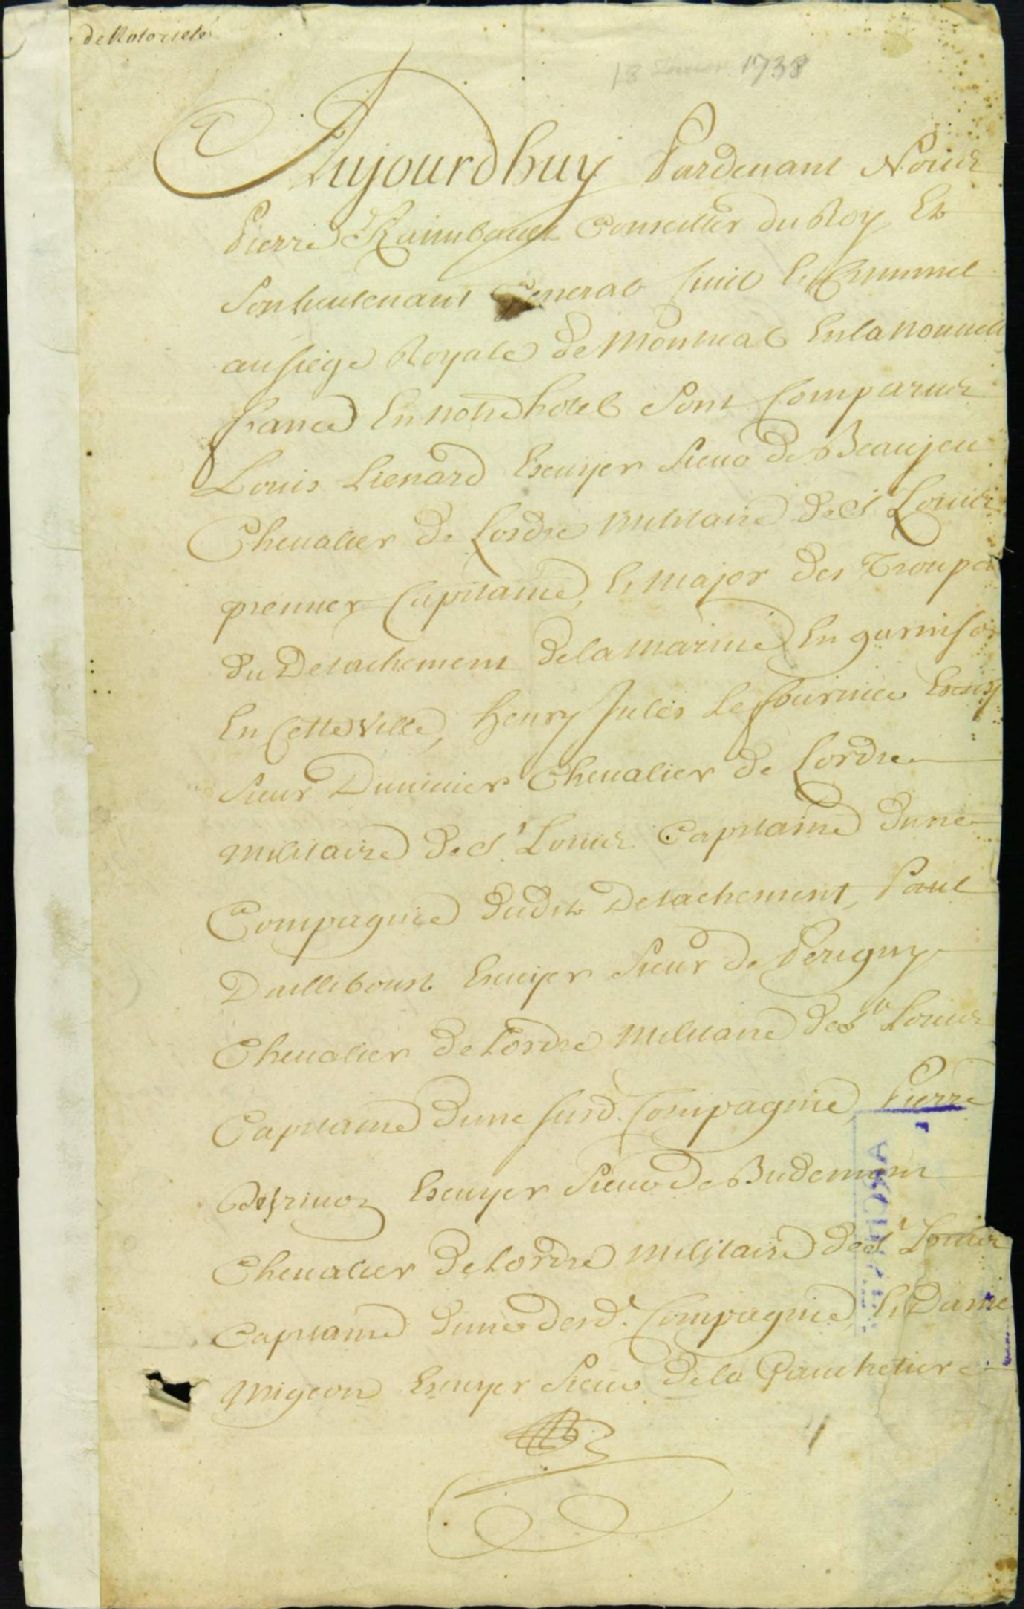 de Notorieté
18 1738
Aujourdhuy Pardeuant Nous
Pierre Raimbault Conseiller du Roy Et
Son lieutenant General Ciuil & Criminel
au siege Royale de Montreal En la nouuelle
france En notre hotel Sont Comparus
Louis Lienard Escuyer Sieur de Beaujeu
Cheualier de Lordre militaire de St Louis
premier Capitaine & Major des Troupes
du Detachement de la marine En garnison
En Cette Ville, henry Jules Le fournier Escuyer
Sieur Duuiuier Cheualier de Lordre
militaire de St Louis Capitaine dune
Compagnie dudit Detachement, Paul
Daillebout Escuyer Sieur de Perigny
Cheualier de Lordre militaire de St Louis
Capitaine dune susd. Compagnie, Pierre
Escuyer Sieur de Budemont
Cheualier de Lordre militaire de St Louis
Capitaine dune desd. Compagnie, & Dame
Migeon Escuyer Sieur de la Gauchetiere
ARCHIVES